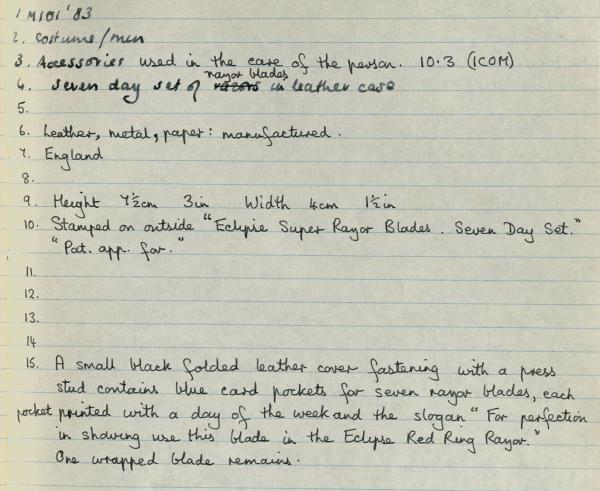 1 M101 '83
2. Costume/men
3. Accessories used in the care of the person. 10.3 (ICOM)
razor blades
4. seven day set of razors in leather case
5.
6. Leather, metal, paper: manufactured.
7. England
8.
9. Height 7½cm 3in Width 4cm 1½in
10. Stamped on outside "Eclipse Super Razor Blades. Seven Day Set."
"Pat. app. for."
11.
12.
13.
14
15. A small black folded leather cover fastening with a press
stud contains blue card pockets for seven razor blades, each
pocket printed with a day of the week and the slogan "For perfection
in shaving use this blade in the Eclipse Red Ring Razor."
One wrapped blade remains.